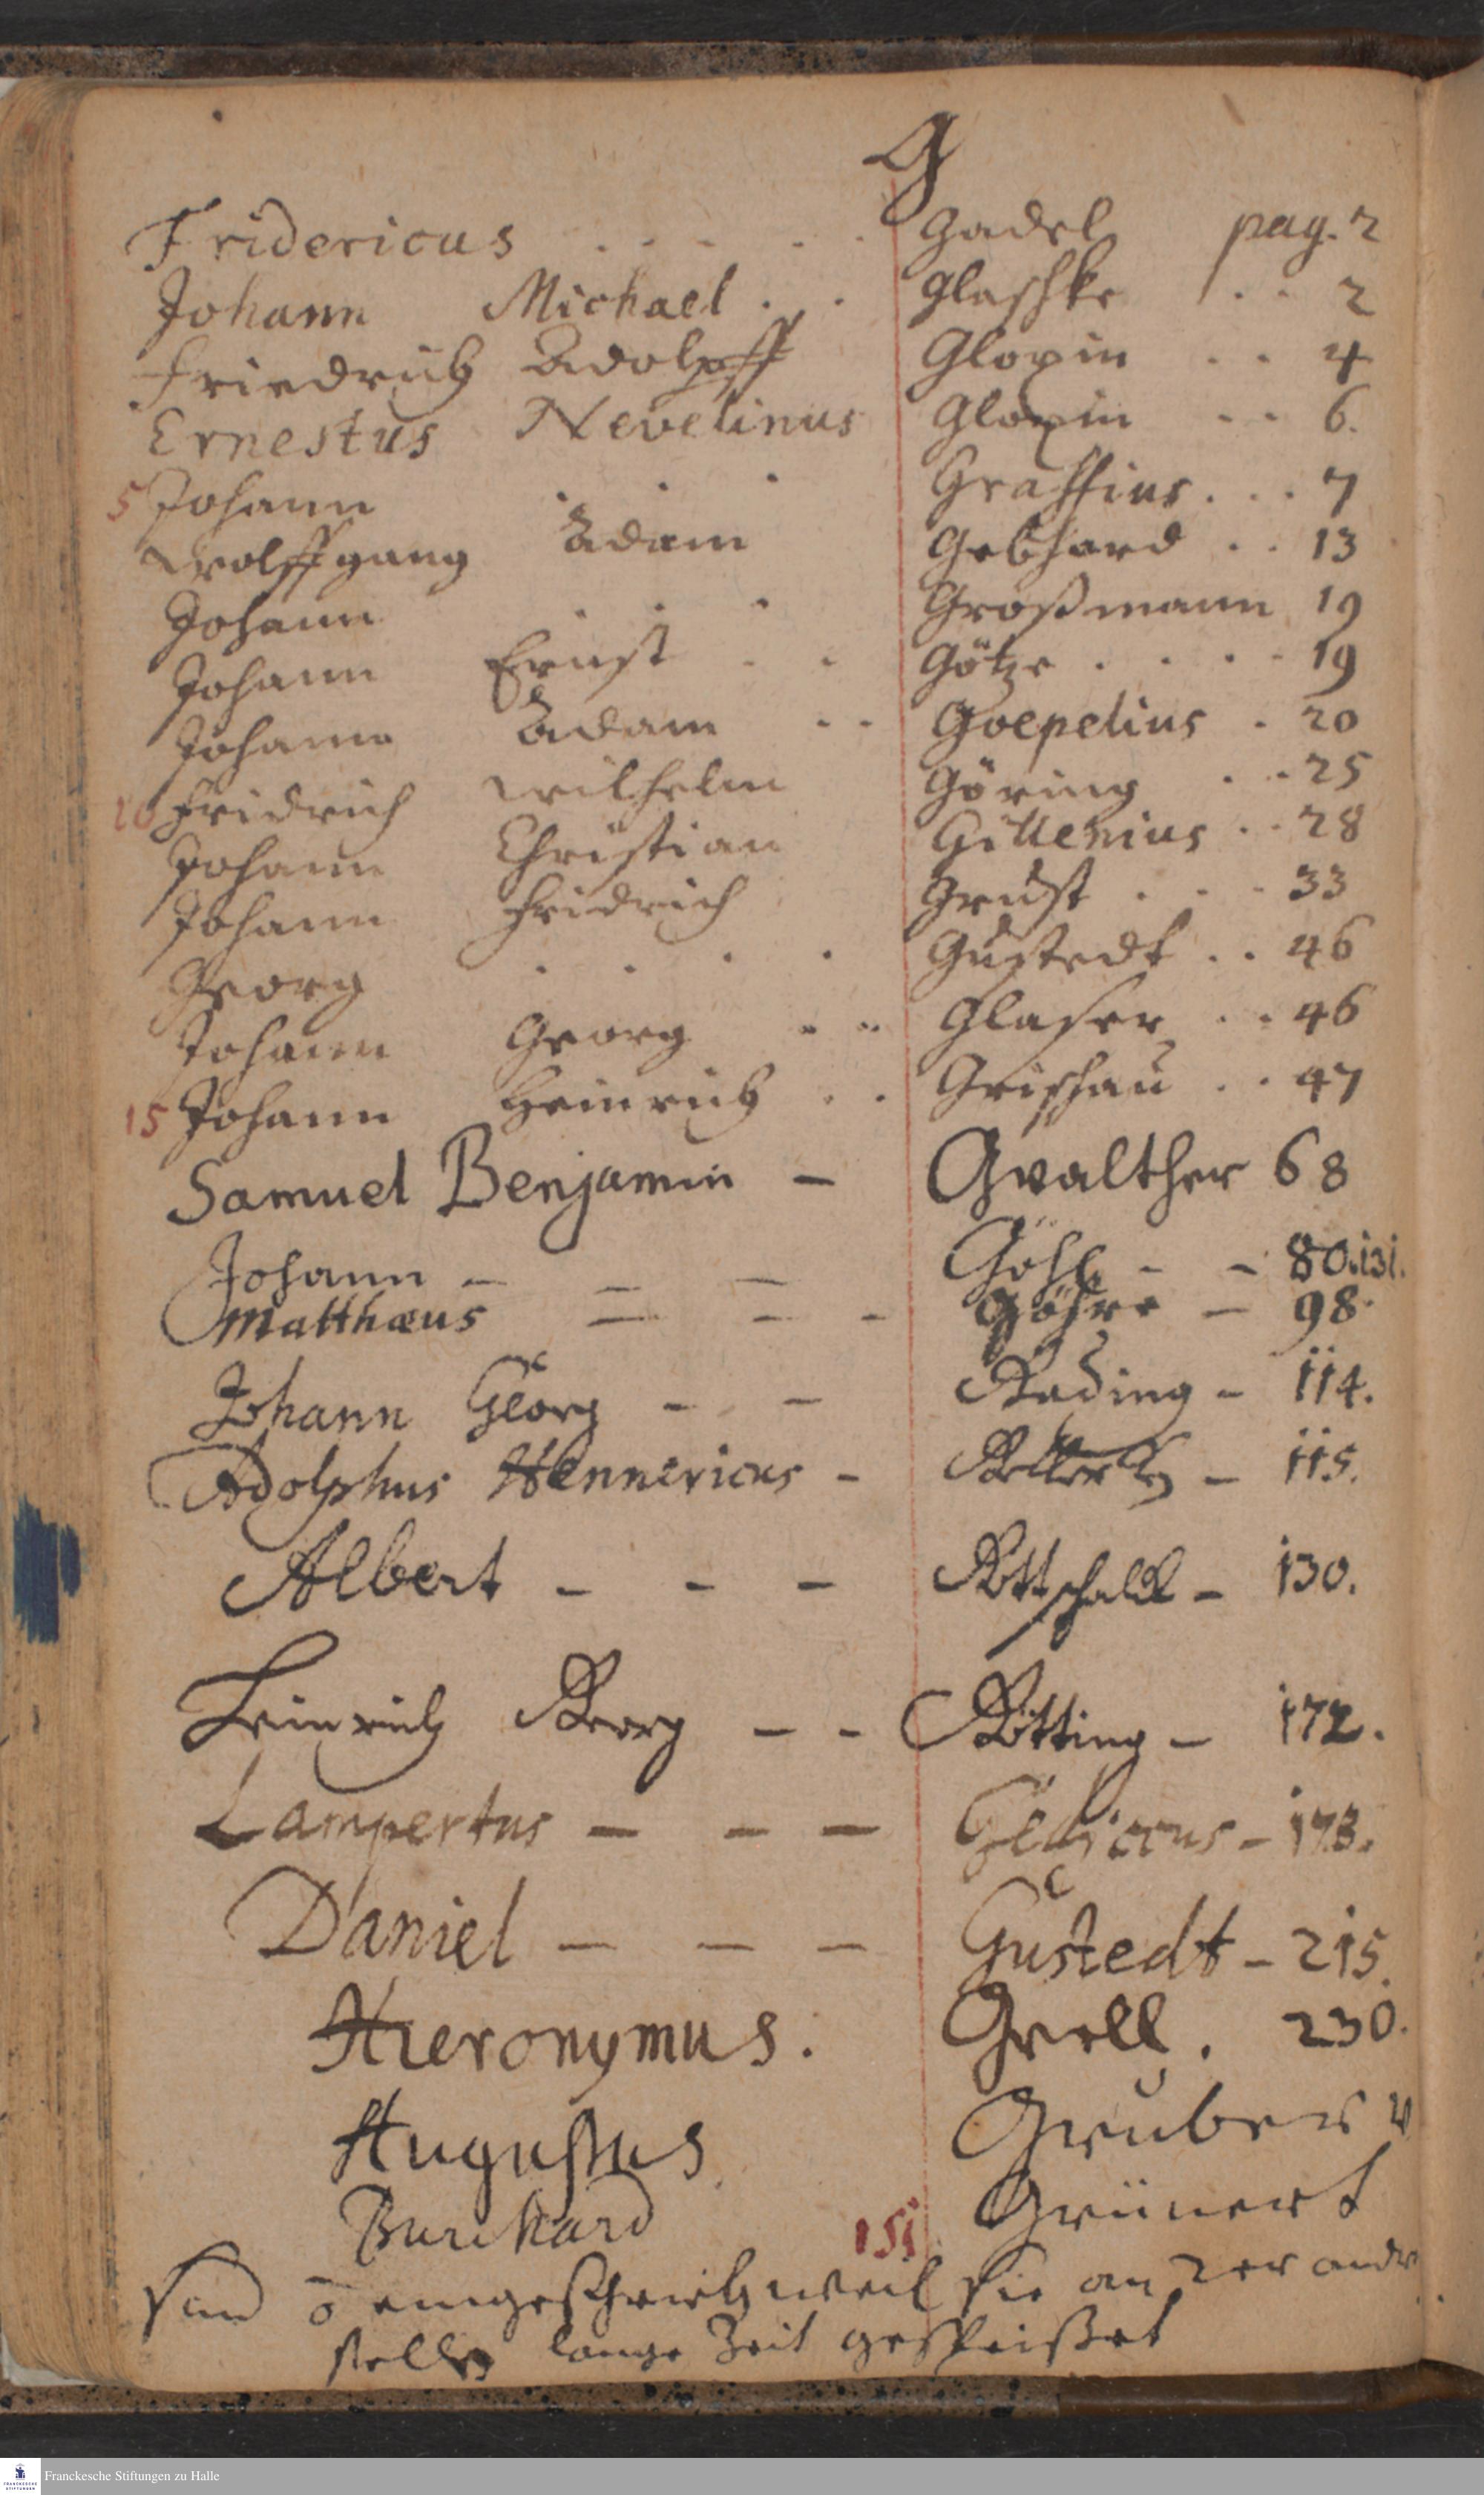 G
Fridericus . . . . . Gadel pag. 2
Johann Michael . . Glaschke . . 2
Friedrich Adolpff Gloxin . . 4
Ernestus Nevelinus Gloxin . . 6.
5 Johann . . . Graffius . . . 7
Wolffgang Adam Gebhard . . 13
Johann . . . Großmann 19
Johann Ernst . . Götze . . . . 19
Johann Adam . . Goepelius . 20
10 Fridrich Wilhelm Göring . . 25
Johann Christian Gillenius . . 28
Johann Fridrich Grust . . . 33
Georg . . . . Gustedt . . 46
Johann Georg . . Glaser . . 46
15 Johann Heinrich . . Grischau . . 47
Samuel Benjamin – Gvalther 68
Johann – – – Göhl – – 80.131.
Matthæus – – – Göhre – 98.
Johann Georg – – Gading – 114.
Adolphus Hennericus – 115.
Albert – – – Gottschald – 130.
Heinrich Georg – – Götting – 172.
Lampertus – – – Gedicus – 173.
Daniel – – – Gustedt – 215.
Hieronymus . Grell . 230.
Augustus Gruber
Burchard 151 Grünert
sind õ eingeschrieb weil sie an der andr
stelle lange Zeit gespeißet
Franckesche Stiftungen zu Halle